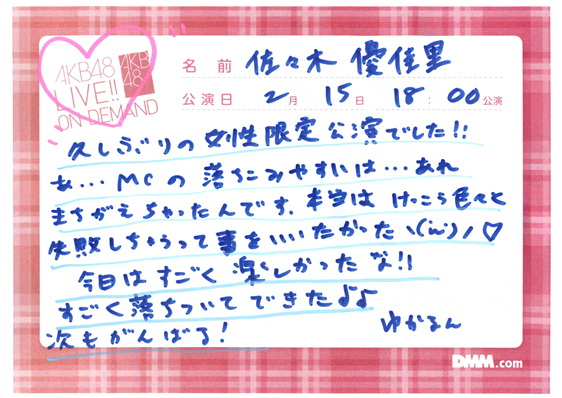 AKB48
LIVE!!
ON DEMAND
AKB
48
名前 佐々木 優佳里
公演日 2月 15日 18:00公演
久しぶりの女性限定公演でした!!
あ…MCの落ちこみやすいは…あれ
まちがえちゃったんです.本当はけっこう色々と
失敗しちゃうって事をいいたかったヽ(ü)ノ♡
今日はすごく楽しかったな!!
すごく落ちついてできた♪♪
次もがんばる!
ゆかるん
DMM.com